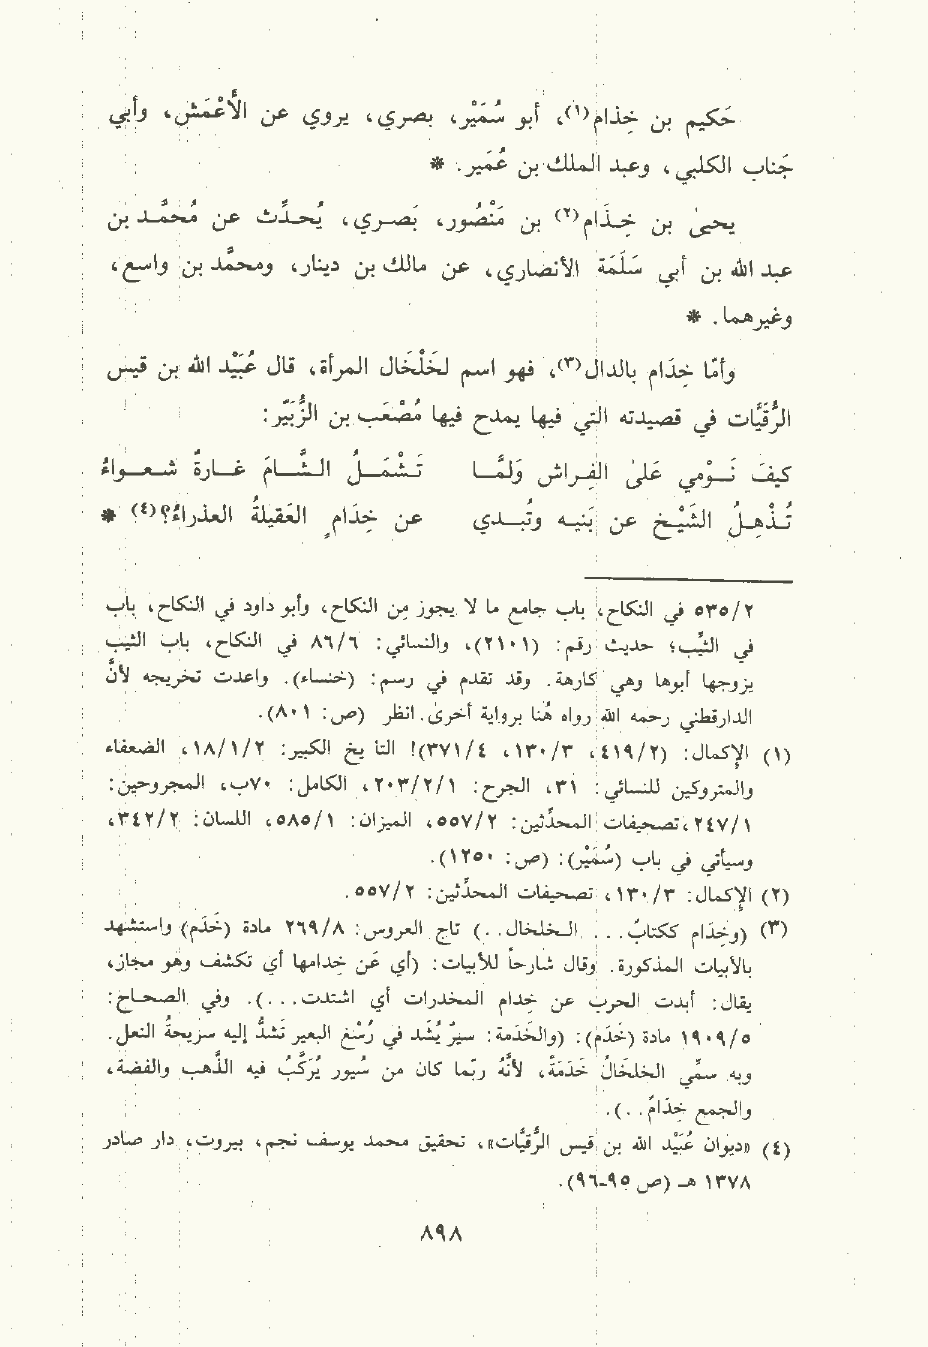 حَكيم بن خِذام(١)، أبو سُمَيْر، بصري، يروي عن الأَعْمَش، وأبي
جَناب الكلبي، وعبد الملك بن عُمَير. *
يحيىٰ بن خِـذَام(٢) بن مَنْصُور، بَصـري، يُحـدِّث عن مُحمَّـد بن
عبد الله بن أبي سَلَمَة الأنصاري، عن مالك بن دينار، ومحمَّد بن واسع،
وغيرهما. *
وأمّا خِدَام بالدال(٣)، فهو اسم لخَلْخَال المرأة، قال عُبَيْد الله بن قيس
الرُّقيَّات في قصيدته التي فيها يمدح فيها مُصْعَب بن الزُّبَيْر:
كيفَ نَـوْمي عَلىٰ الفِراش وَلمَّـا تَـشْمَـلُ الـشَّـامَ غـارةٌ شـعـواءُ
تُـذْهِـلُ الشَّيْـخ عن بَنيـه وتُبـدي عن خِدَامِ العَقيلَةُ العذراءُ؟(٤) *
٥٣٥/٢ في النكاح، باب جامع ما لا يجوز مِن النكاح، وأبو داود في النكاح، باب
في الثيِّب؛ حديث رقم: (٢١٠١)، والنسائي: ٨٦/٦ في النكاح، باب الثيب
يزوجها أبوها وهي كارهة. وقد تقدم في رسم: (خنساء). واعدت تخريجه لأنَّ
الدارقطني رحمه الله رواه هُنا برواية أخرىٰ. انظر (ص: ٨٠١).
(١) الإكمال: (٤١٩/٢، ١٣٠/٣، ٣٧١/٤)! التا يخ الكبير: ١٨/١/٢، الضعفاء
والمتروكين للنسائي: ٣١، الجرح: ٢٠٣/٢/١، الكامل: ٧٠ب، والمجروحين:
٢٤٧/١، تصحيفات المحدِّثين: ٥٥٧/٢، الميزان: ٥٨٥/١، اللسان: ٣٤٢/٢،
وسيأتي في باب (سُمَيْر): (ص: ١٢٥٠).
(٢) الإكمال: ١٣٠/٣، تصحيفات المحدِّثين: ٥٥٧/٢.
(٣) (وخِدَام ككتابٌ... الـخلخال..) تاج العروس: ٢٦٩/٨ مادة (خَدَم) واستشهد
بالأبيات المذكورة. وقال شارحاً للأبيات: (أي عَن خِدامها أي تكشف وهو مجاز،
يقال: أبدت الحرب عن خدام المخدرات أي اشتدت...). وفي الصحـاح:
١٩٠٩/٥ مادة (خَدَم): (والخَدَمة: سيرٌ يُشَد في رُسْغ البعير تَشدُّ إليه سريحةُ النعل.
وبه سمِّي الخلخَالُ خَدَمَةً، لأنَّه ربّما كان من سُيور يُرَكَّبُ فيه الذَّهب والفضة،
والجمع خِدَامٌ..).
(٤) «ديوان عُبَيْد الله بن قيس الرُّقيَّات»، تحقيق محمد يوسف نجم، بيروت، دار صادر
١٣٧٨ هـ (ص ٩٥-٩٦).
٨٩٨